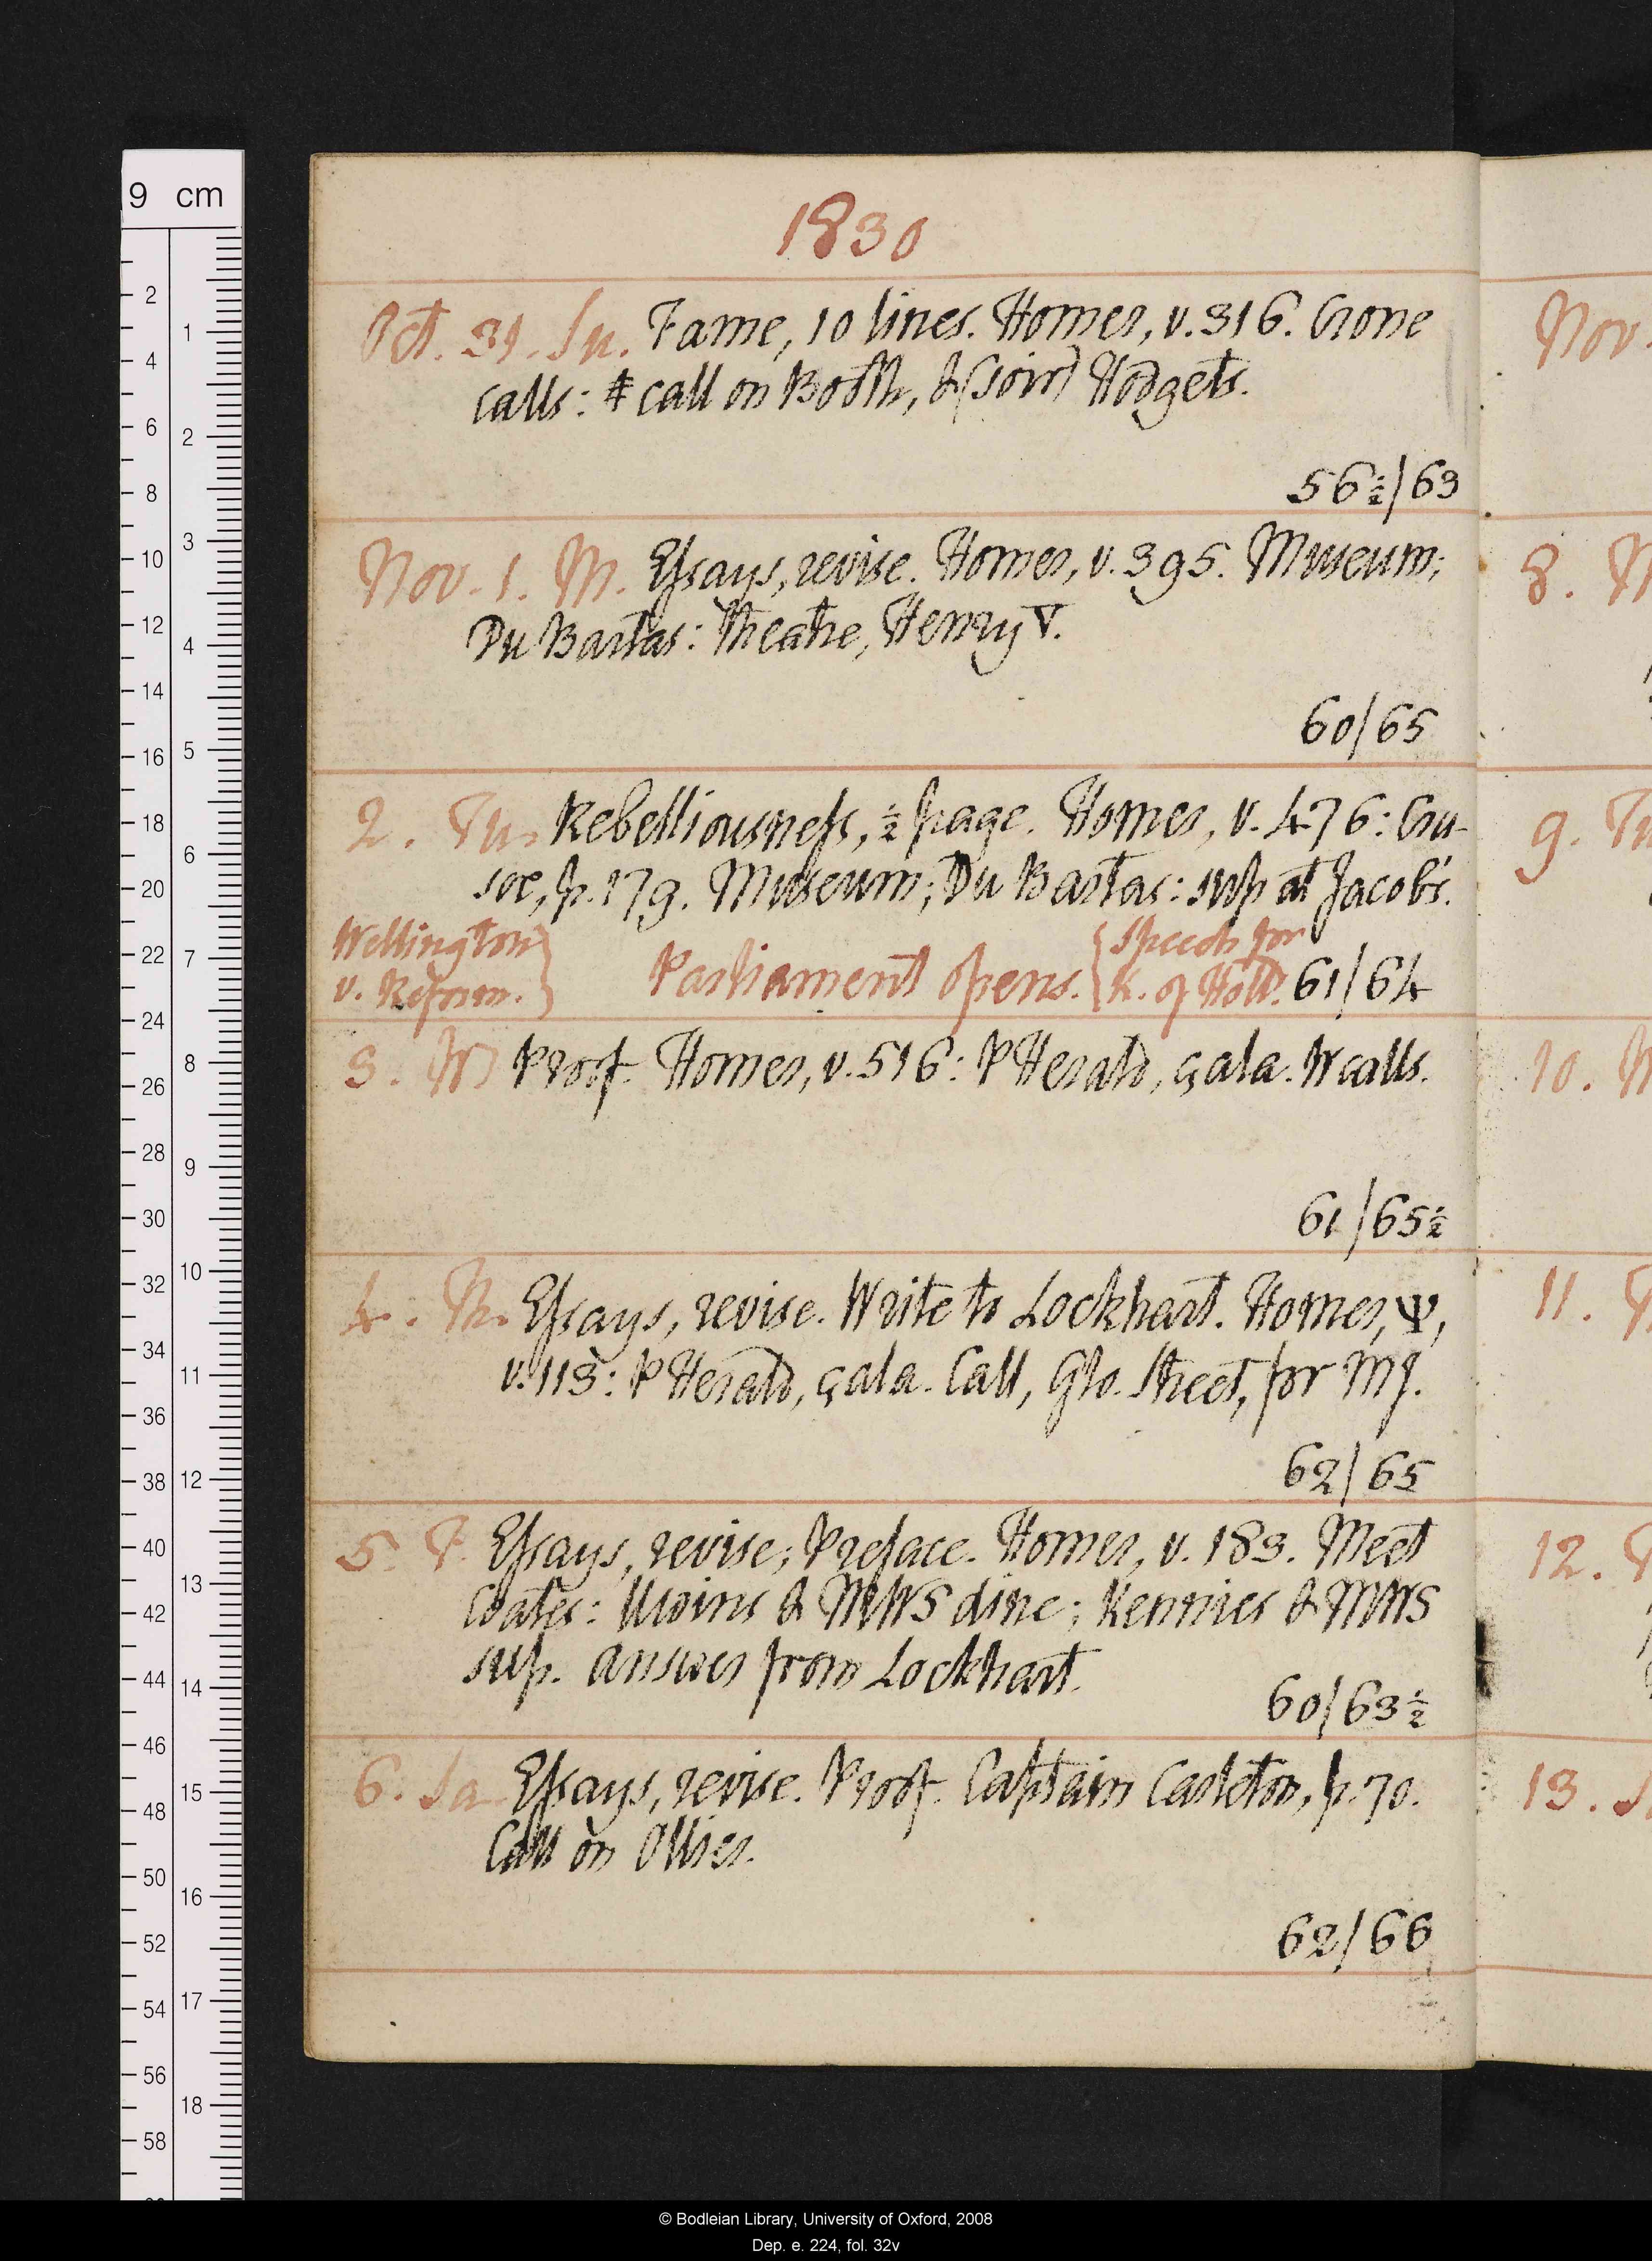 1830
Oct. 31. Su. Fame, 10 lines. Homer, v. 316. Crone
calls: ‡ call on Booth, & (soir) Hodgets.
56½/63
Nov. 1. M. Essays, revise. Homer, v. 395. Museum;
Du Bartas: theatre, Henry V.
60/65
2. Tu. Rebelliousness, ½ page. Homer, v. 476: Cru-
soe, p. 179. Museum; Du Bartas: sup at Jacob's.
Wellington
v. Reform.
Parliament opens.
Speech for
K. of Holld.
61/64
3. W Proof. Homer, v. 516: P Herald, çala. W calls.
61/65½
4. Th. Essays, revise. Write to Lockhart. Homer, Ψ,
v. 113: P Herald, çala. Call, Glo. Street, for MJ.
62/65
5. F. Essays, revise; Preface. Homer, v. 183. Meet
Coates: Uwins & MWS dine; Kennies & MWS
sup. answer from Lockhart.
60/63½
6. Sa. Essays, revise. Proof. Captain Carleton, p. 70.
Call on Ollier.
62/66
Nov.
8. M
9. Tu
10. W
11. T
12.
13. S
9 cm
2
4
6
8
10
12
14
16
18
20
22
24
26
28
30
32
34
36
38
40
42
44
46
48
50
52
54
56
58
1
2
3
4
5
6
7
8
9
10
11
12
13
14
15
16
17
18
© Bodleian Library, University of Oxford, 2008
Dep. e. 224, fol. 32v